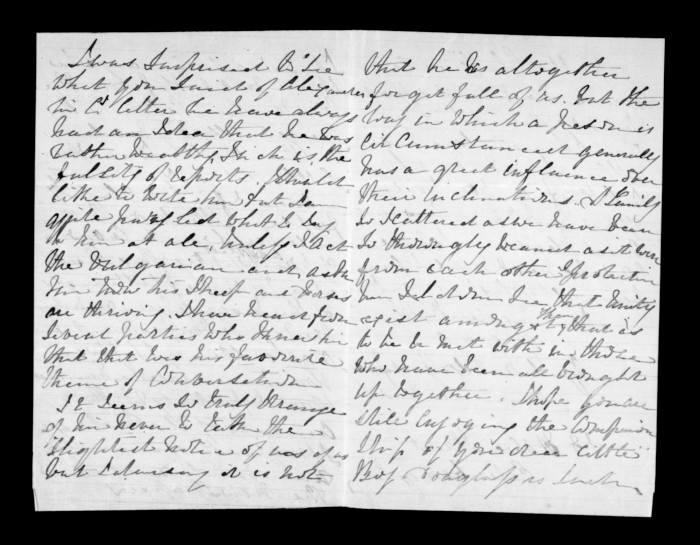 I was surprised to see
what you said of Alexander
in Cs letter we have always
had an Idea that he was
rather wealthy, such is the
falsity of reports, I should
like to write him but I am
quite puzzled what to say
to him at all, unless I act
the Vulgarian and ask
him how his sheep and horses
are thriving. I have heard from
several parties who know him
that that was his favourite
theme of Conversation
It seems so truly strange
of him never to take the
slightest notice of us
but I daresay it is not
that he is altogether
forgetfull of us. but the
way in which a person is
circumstanced generally
has a great influence over
their inclinations. A family
so scattered as we have been
so thorougly weaned as it were
from each other's protection
seldom see that Unity
exist amongst them, that is
to be be met with in those
who have been all brought
up together. I hope you are
still enjoying the Companion
ship of your dear little
Boy Douglas is such